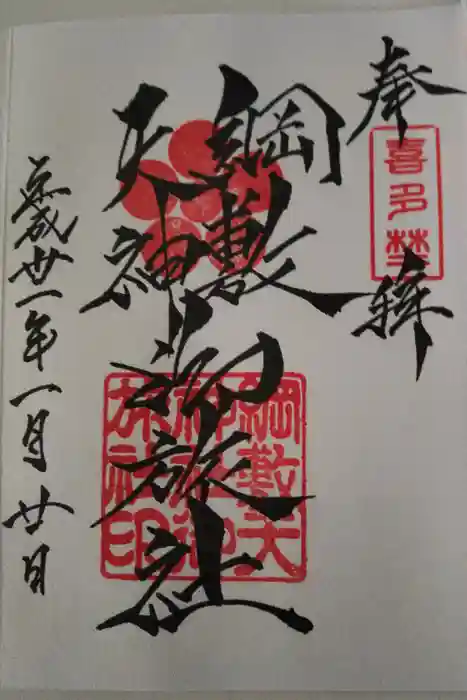 奉拝
喜多埜
綱敷
天神
御旅社
綱敷天
神社御
旅社印
平成廿一年一月廿日